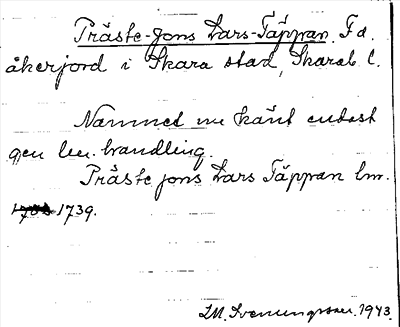 Präste-Jons Lars-Täppan. F.d.
åkerjord i Skara stad, Skarab. l.
Namnet nu känt endast
gen len. handling.
Präste jons Lars Täppan lm.
1739.
I.M. Svenungsson. 1943.